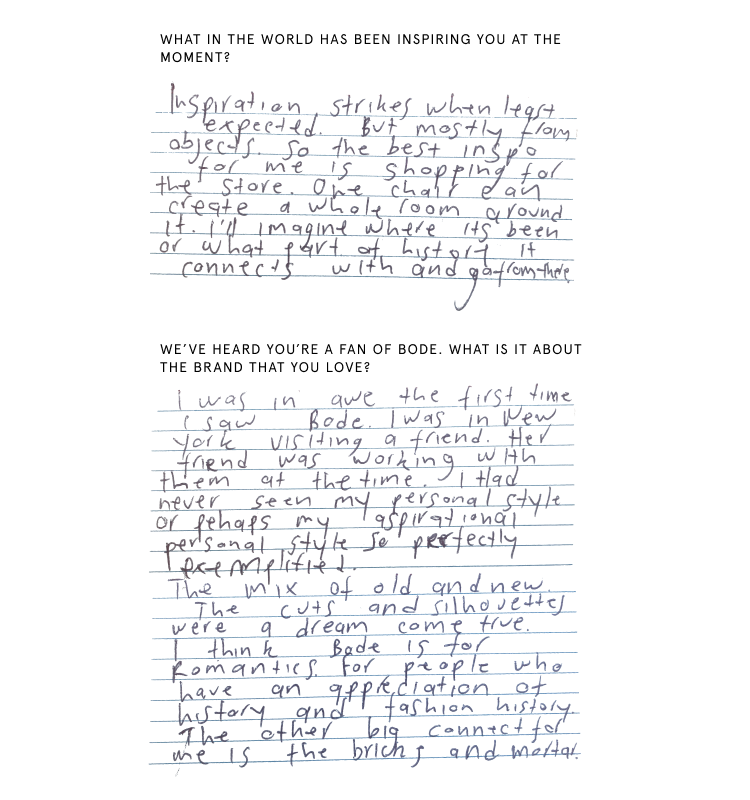 WHAT IN THE WORLD HAS BEEN INSPIRING YOU AT THE
MOMENT?
Inspiration strikes when least
expected. But mostly from
objects. So the best inspo
for me is shopping for
the store. One chair can
create a whole room around
it. I'll imagine where its been
or what part of history it
connects with and go from there
WE'VE HEARD YOU'RE A FAN OF BODE. WHAT IS IT ABOUT
THE BRAND THAT YOU LOVE?
I was in awe the first time
I saw Bode. I was in New
York visiting a friend. Her
friend was working with
them at the time. I Had
never seen my personal style
or pehaps my aspirational
personal style so perfectly
exemplified.
The mix of old and new.
The cuts and silhouettes
were a dream come true.
I think Bode is for
Romantics. For people who
have an appreciation of
history and fashion history.
The other big connect for
me is the bricks and mortar.